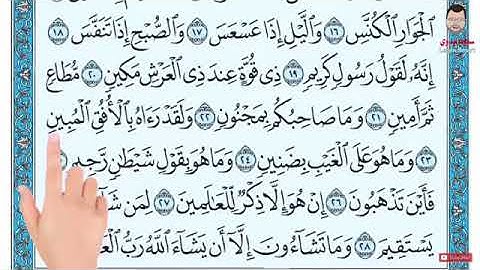 ٱلْجَوَارِ ٱلْكُنَّسِ ١٦ وَٱلَّيْلِ إِذَا عَسْعَسَ ١٧ وَٱلصُّبْحِ إِذَا تَنَفَّسَ ١٨
إِنَّهُۥ لَقَوْلُ رَسُولٍ كَرِيمٍ ١٩ ذِى قُوَّةٍ عِندَ ذِى ٱلْعَرْشِ مَكِينٍ ٢٠ مُّطَاعٍ
ثَمَّ أَمِينٍ ٢١ وَمَا صَاحِبُكُم بِمَجْنُونٍ ٢٢ وَلَقَدْ رَءَاهُ بِٱلْأُفُقِ ٱلْمُبِينِ
٢٣ وَمَا هُوَ عَلَى ٱلْغَيْبِ بِضَنِينٍ ٢٤ وَمَا هُوَ بِقَوْلِ شَيْطَٰنٍ رَّجِيمٍ
فَأَيْنَ تَذْهَبُونَ ٢٦ إِنْ هُوَ إِلَّا ذِكْرٌ لِّلْعَٰلَمِينَ ٢٧ لِمَن شَآءَ
يَسْتَقِيمَ ٢٨ وَمَا تَشَآءُونَ إِلَّآ أَن يَشَآءَ ٱللَّهُ رَبُّ